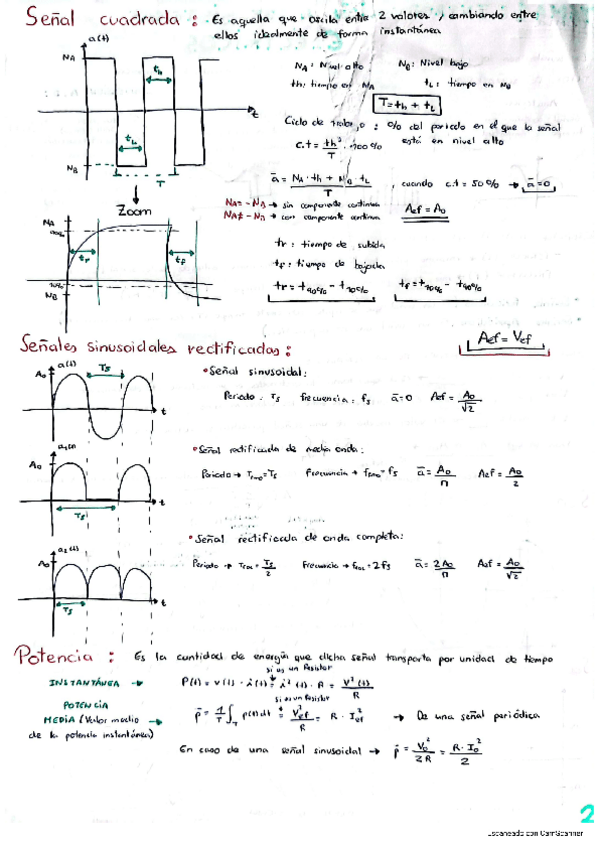 Señal cuadrada: Es aquella que oscila entre 2 valores, cambiando entre
ellos idealmente de forma instantánea
a(t)
NA
th
t
tL
NB
T
NA: Nivel alto NB: Nivel bajo
th: tiempo en NA tL: tiempo en NB
T = th + tL
Ciclo de trabajo: % del periodo en el que la señal
está en nivel alto
c.t = th/T · 100%
ā = (NA · th + NB · tL)/T, cuando c.t = 50% → ā = 0
NA = -NB → sin componente continua
NA ≠ -NB → con componente continua
Aef = A0
Zoom
NA
90%
tr
tf
10%
NB
tr: tiempo de subida
tf: tiempo de bajada
tr = t90% - t10% tf = t10% - t90%
Señales sinusoidales rectificadas:
Aef = Vef
a(t)
A0
Ts
t
• Señal sinusoidal:
Periodo: Ts frecuencia: fs ā=0 Aef = A0/√2
A0
Ts
t
• Señal rectificada de media onda:
Periodo → =Ts Frecuencia → =fs ā = A0/π Aef = A0/2
a2(t)
A0
Ts
t
• Señal rectificada de onda completa:
Periodo → = Ts/2 Frecuencia → = 2fs ā = 2A0/π Aef = A0/√2
Potencia: Es la cantidad de energía que dicha señal transporta por unidad de tiempo
si es un Resistor
INSTANTÁNEA → P(t) = v(t) · i(t) = i²(t) · R = V²(t)/R
si es un Resistor
POTENCIA
MEDIA (Valor medio
de la potencia instantánea) → p̄ = 1/T ∫T p(t)dt = V²ef/R = R · I²ef → De una señal periódica
En caso de una señal sinusoidal → p̄ = V0²/2R = R · I0²/2
2
Escaneado con CamScanner